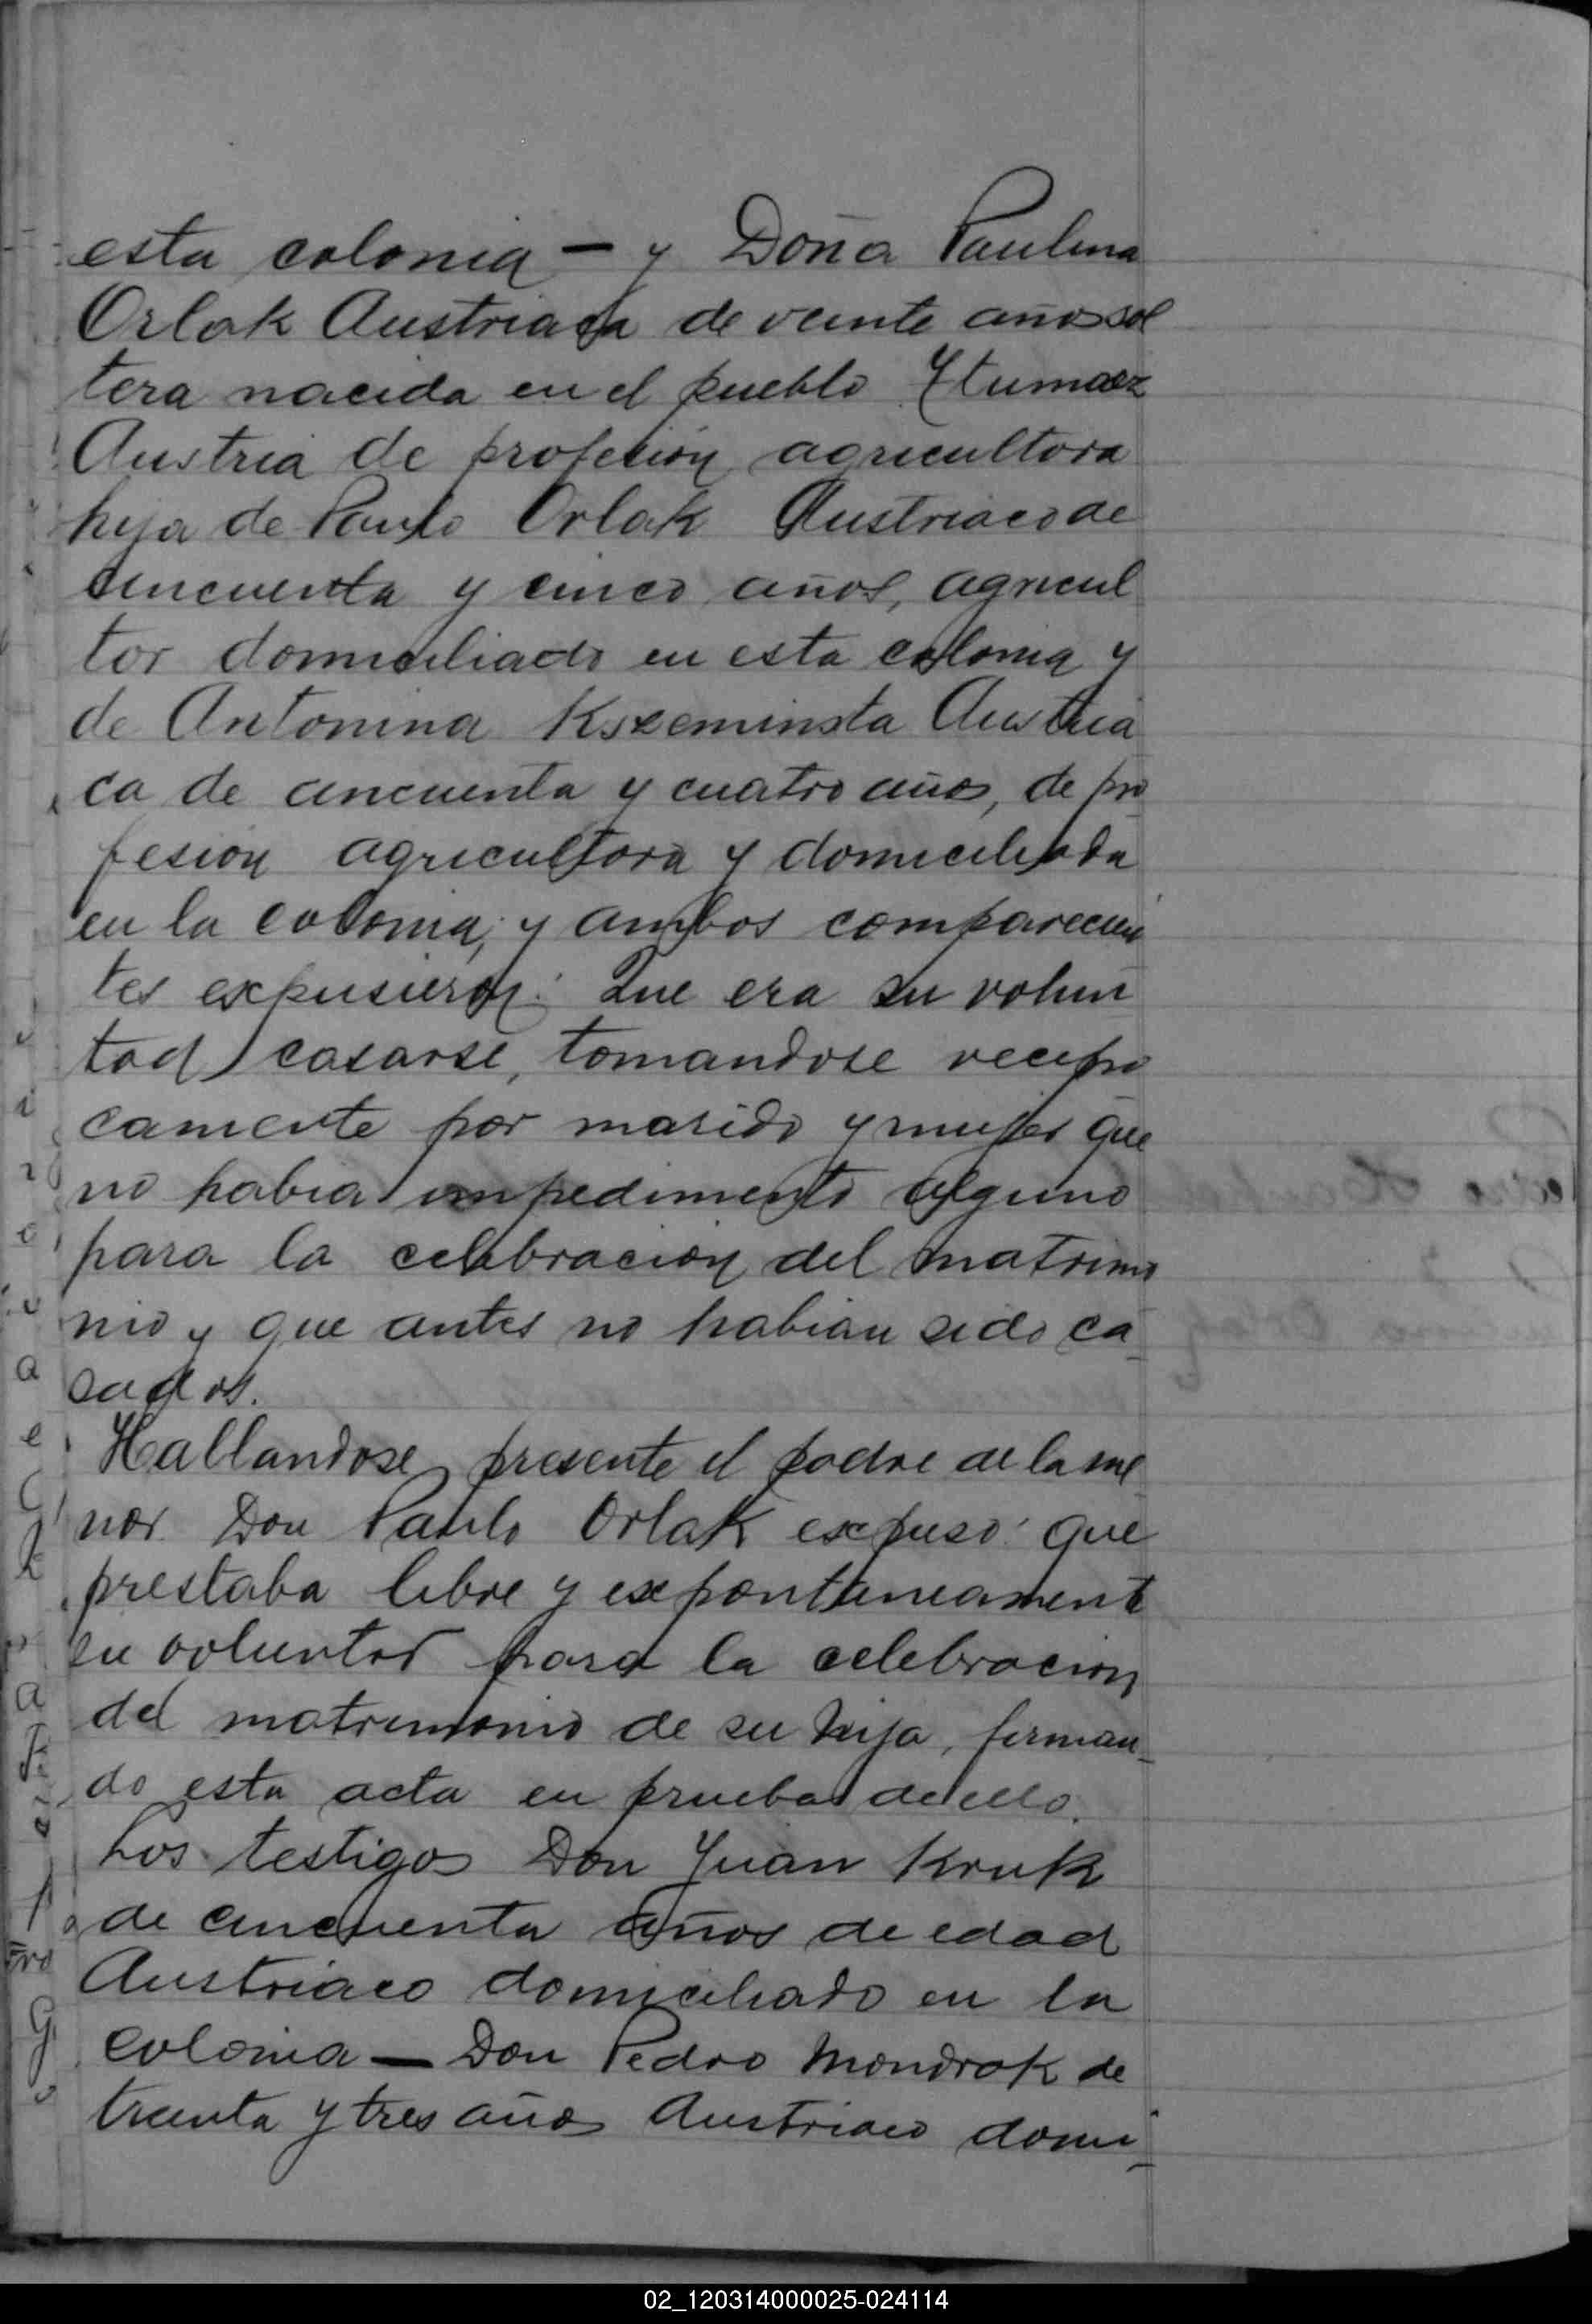 esta colonia — y Doña Paulina
Orlak Austriaca de veinte años sol
tera nacida en el pueblo
Austria de profesión agricultora
hija de Paulo Orlak Austriaco de
cincuenta y cinco años, agricul
tor domiciliado en esta colonia y
de Antonina Kszeminsta Austria
ca de cincuenta y cuatro años, de pro
fesión agricultora y domiciliada
en la colonia; y ambos comparecien
tes expusieron: Que era su volun
tad casarse, tomandose recipro
camente por marido y mujer que
no habia impedimento alguno
para la celebracion del matrimo
nio y que antes no habian sido ca
sados.
Hallandose presente el padre de la me
nor Don Paulo Orlak expuso: que
prestaba libre y expontaneamente
su voluntad para la celebracion
del matrimonio de su hija, firman_
do esta acta en prueba de ello.
Los testigos Don Juan Kruk
de cincuenta años de edad
Austriaco domiciliado en la
colonia — Don Pedro Mondrok de
treinta y tres años Austriaco domi_
02_120314000025-024114